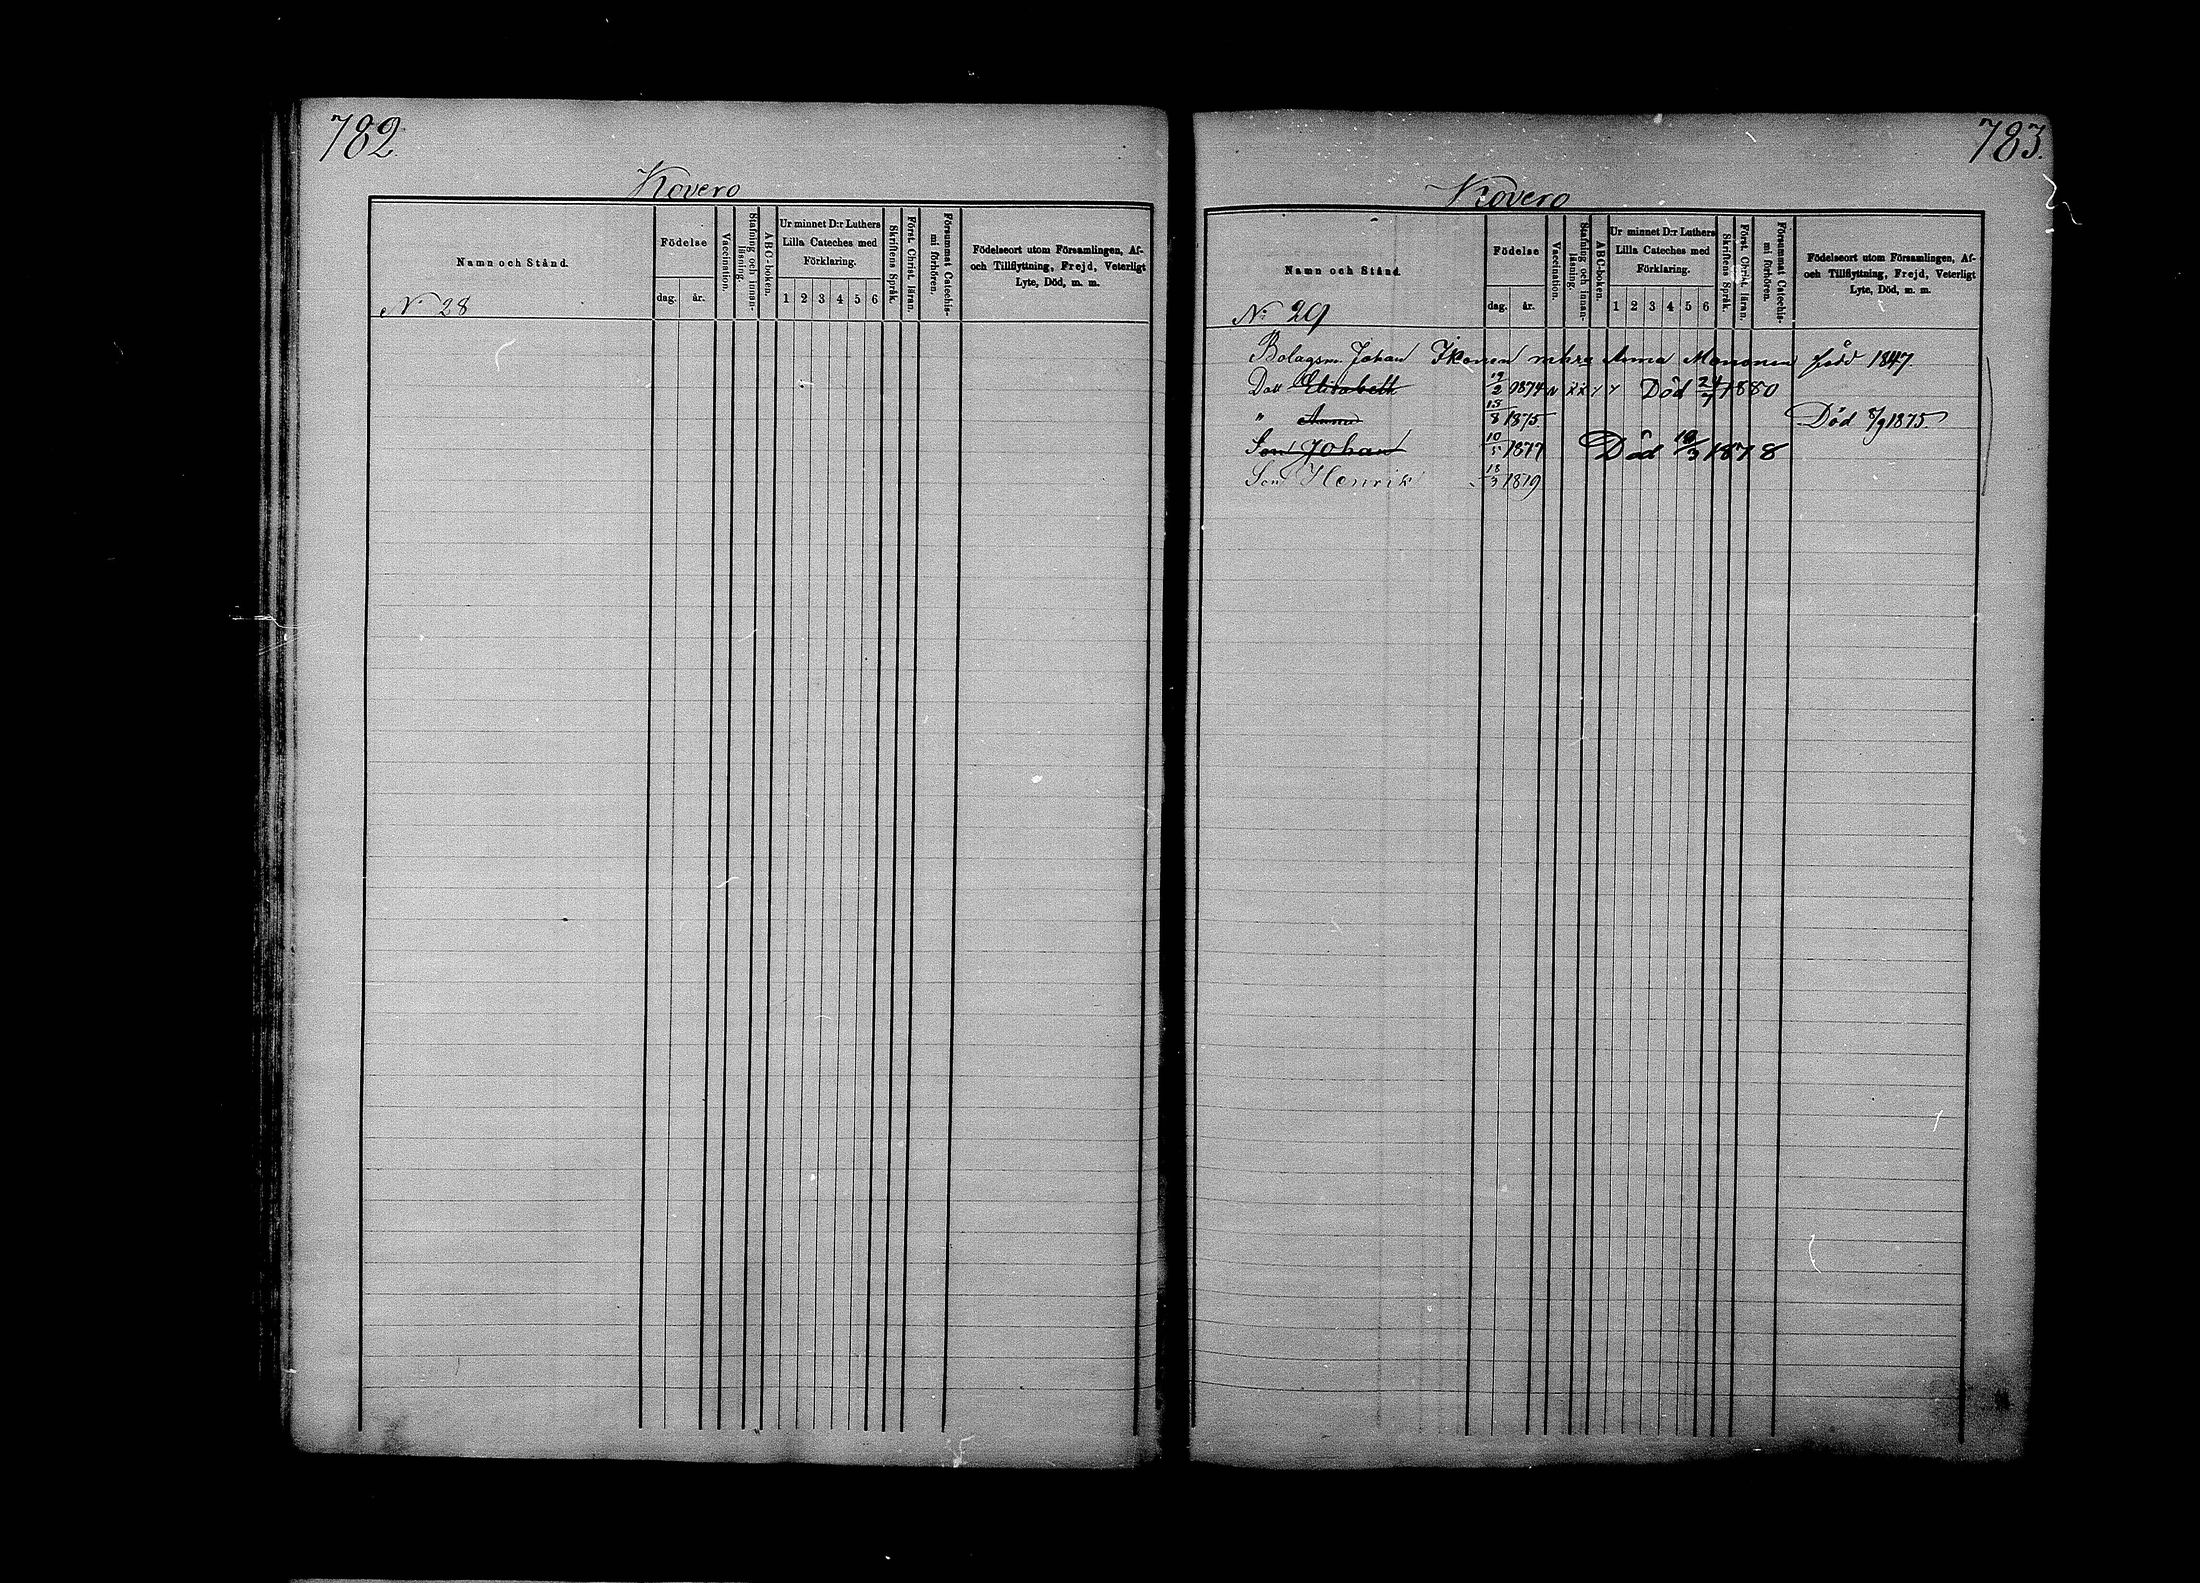 782.
Kovero
Namn och Stånd.
Födelse
dag. år.
Vaccination.
Stafning och innan-läsning.
ABC-boken.
Ur minnet D:r Luthers Lilla Cateches med Förklaring.
1 2 3 4 5 6
Skriftens Språk.
Först. Christ. läran.
Försummat Catechis-mi förhören.
Födelseort utom Församlingen, Af-
och Tillflyttning, Frejd, Veterligt
Lyte, Död, m. m.
N: 28
783.
Kovero
Namn och Stånd.
Födelse
dag. år.
Vaccination.
Stafning och innan-läsning.
ABC-boken.
Ur minnet D:r Luthers Lilla Cateches med Förklaring.
1 2 3 4 5 6
Skriftens Språk.
Först. Christ. läran.
Försummat Catechis-mi förhören.
Födelseort utom Församlingen, Af-
och Tillflyttning, Frejd, Veterligt
Lyte, Död, m. m.
N: 29
Bolagsm. Johan Ikonen Anna född 1847.
Dott Elisabeth 19/2 1874 Död 24/7 1880
" Anna 15/8 1875 Död 8/9 1875
Son Johan 10/5 1877 Död 1878
Son Henrik 18/3 1879